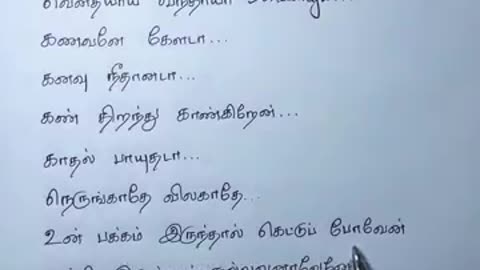 கணவனே கேளடா...
கனவு நீதானடா...
கண் திறந்து காண்கிறேன்...
காதல் பாயுதடா...
நெருங்காதே விலகாதே...
உன் பக்கம் இருந்தால் கெட்டுப் போவேன்